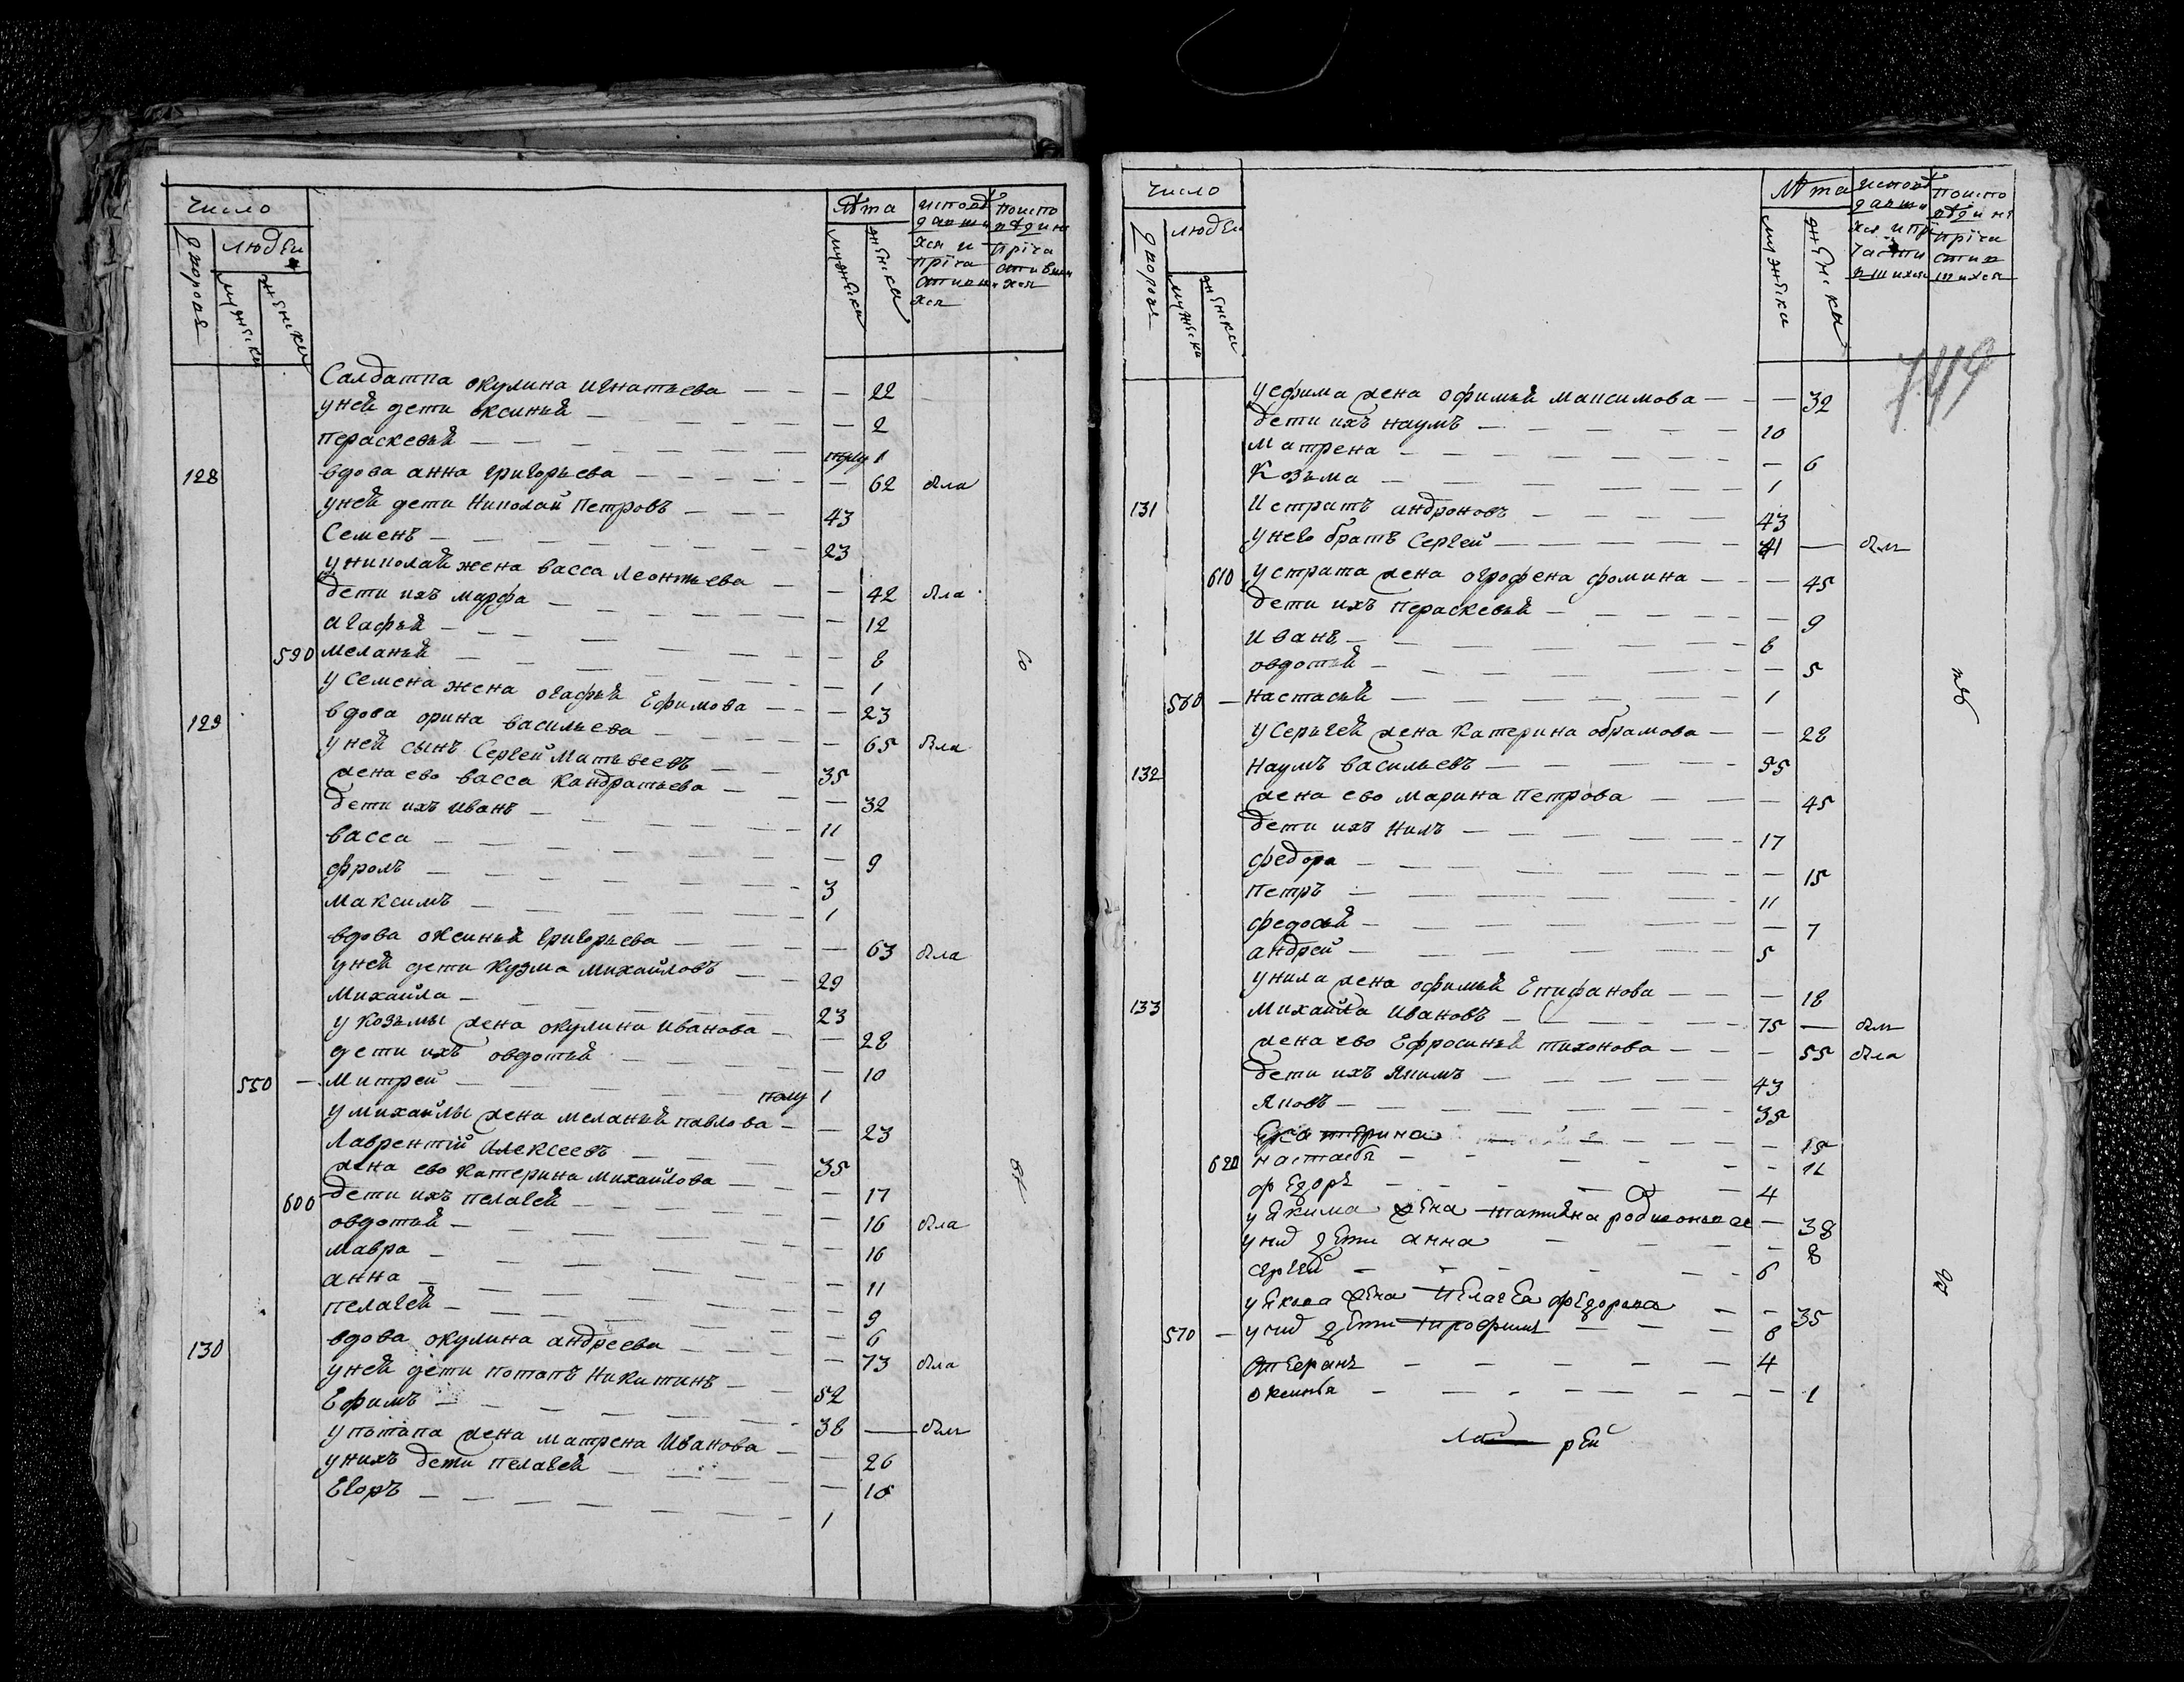 число
дворовъ
людей
мужеска
женска
лѣта
мужеска
женска
исповѣ
дав
хся и
прича
стив
хся
Салдатка окулина игнатьева — — — 22
у ней дети оксинья — — — 2
пераскевья — — — 1
128 вдова анна григорьева — — — 62 была
у ней дети Николай Петровъ — — — 43
Семенъ — — — 23
у николай жена васса леонтьева — — 42 была
дети ихъ марфа — — — 12
агафья — — — 8
590 меланья — — — 1
у семена жена огафья Ефимова — — 23
129 вдова орина васильева — — — 65 была
у ней сынъ Сергей Матьвеевъ — — 35
жена ево васса Кандратьева — — 32
дети ихъ иванъ — — — 11
васса — — — 9
фролъ — — — 3
максимъ — — — 1
вдова оксинья григорьева — — — 63 была
у ней дети кузма михайловъ — — 29
михайла — — — 23
у козьмы жена окулина иванова — — 28
дети ихъ овдотья — — — 10
550 — митрей — — — полу 1
у михайлы жена меланья павлова — — 23
Лаврентий Алексеевъ — — — 35
жена ево катерина михайлова — — 17
600 дети ихъ пелагей — — — 16 была
овдотья — — — 16
мавра — — — 11
анна — — — 9
пелагей — — — 6
130 вдова окулина андреева — — — 73 была
у ней дети потапъ никитинъ — — 52
Ефимъ — — — 38 — был
у потапа жена матрена Иванова — — 26
у нихъ дети пелагей — — — 18
Егоръ — — — 1
число
дворовъ
людей
мужеска
женска
лѣта
мужеска
женска
исповѣ
дав
хся и при
части
вшихся
749
у ефима жена офимья максимова — — — 32
дети ихъ наумъ — — — 10
матрена — — — 6
Козьма — — — 1
131 Истратъ андроновъ — — — 43
у него братъ Сергей — — — 41 — был
610 у страта жена огрофена фомина — — — 45
дети ихъ пераскевья — — — 9
иванъ — — — 8
овдотья — — — 5
560 — настасья — — — 1
у Серьгей жена катерина обрамова — — 28
132 наумъ васильевъ — — — 55
жена ево марина петрова — — — 45
дети ихъ нилъ — — — 17
федора — — — 15
петръ — — — 11
федосья — — — 7
андрей — — — 5
у нила жена офимья Епифанова — — — 18
133 Михайла ивановъ — — — 75 — был
жена ево Ефросинья тихонова — — — 55 была
дети ихъ якимъ — — — 43
яковъ — — — 35
Екатерина — — — 15
620 настасья — — — 11
федоръ — — — 4
у якима жена татияна родионова — 38
у них дети анна — — 8
сергей — — — 6
у якова жена пелагея федорова — — 35
570 — у них дети трофимъ — — — 8
— — — 4
оксинья — — — 1
рей